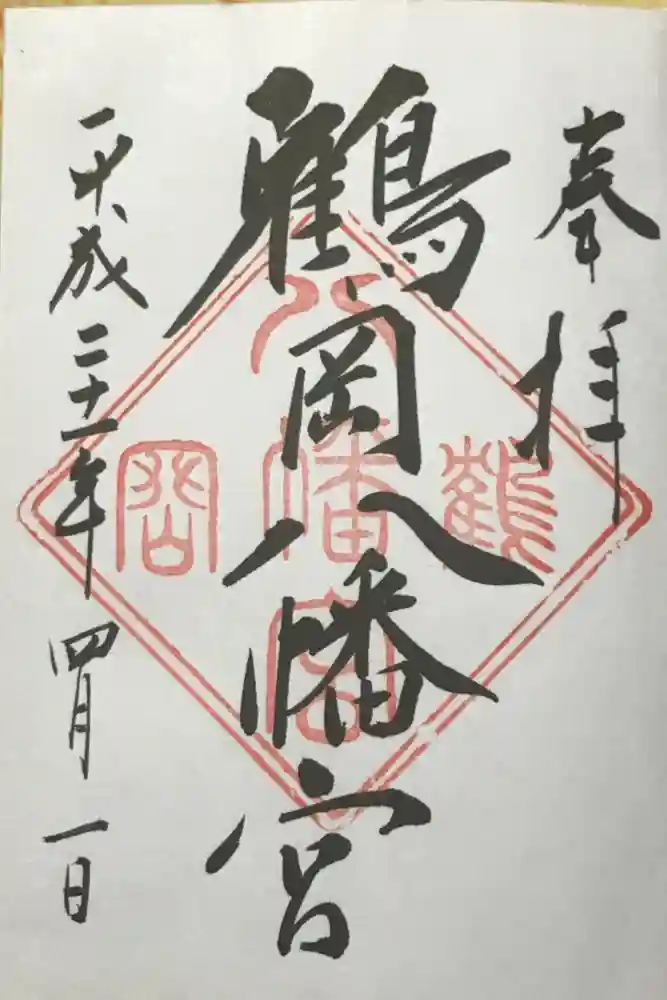 奉拝
鶴岡八幡宮
平成二十一年四月一日
鶴岡八幡宮